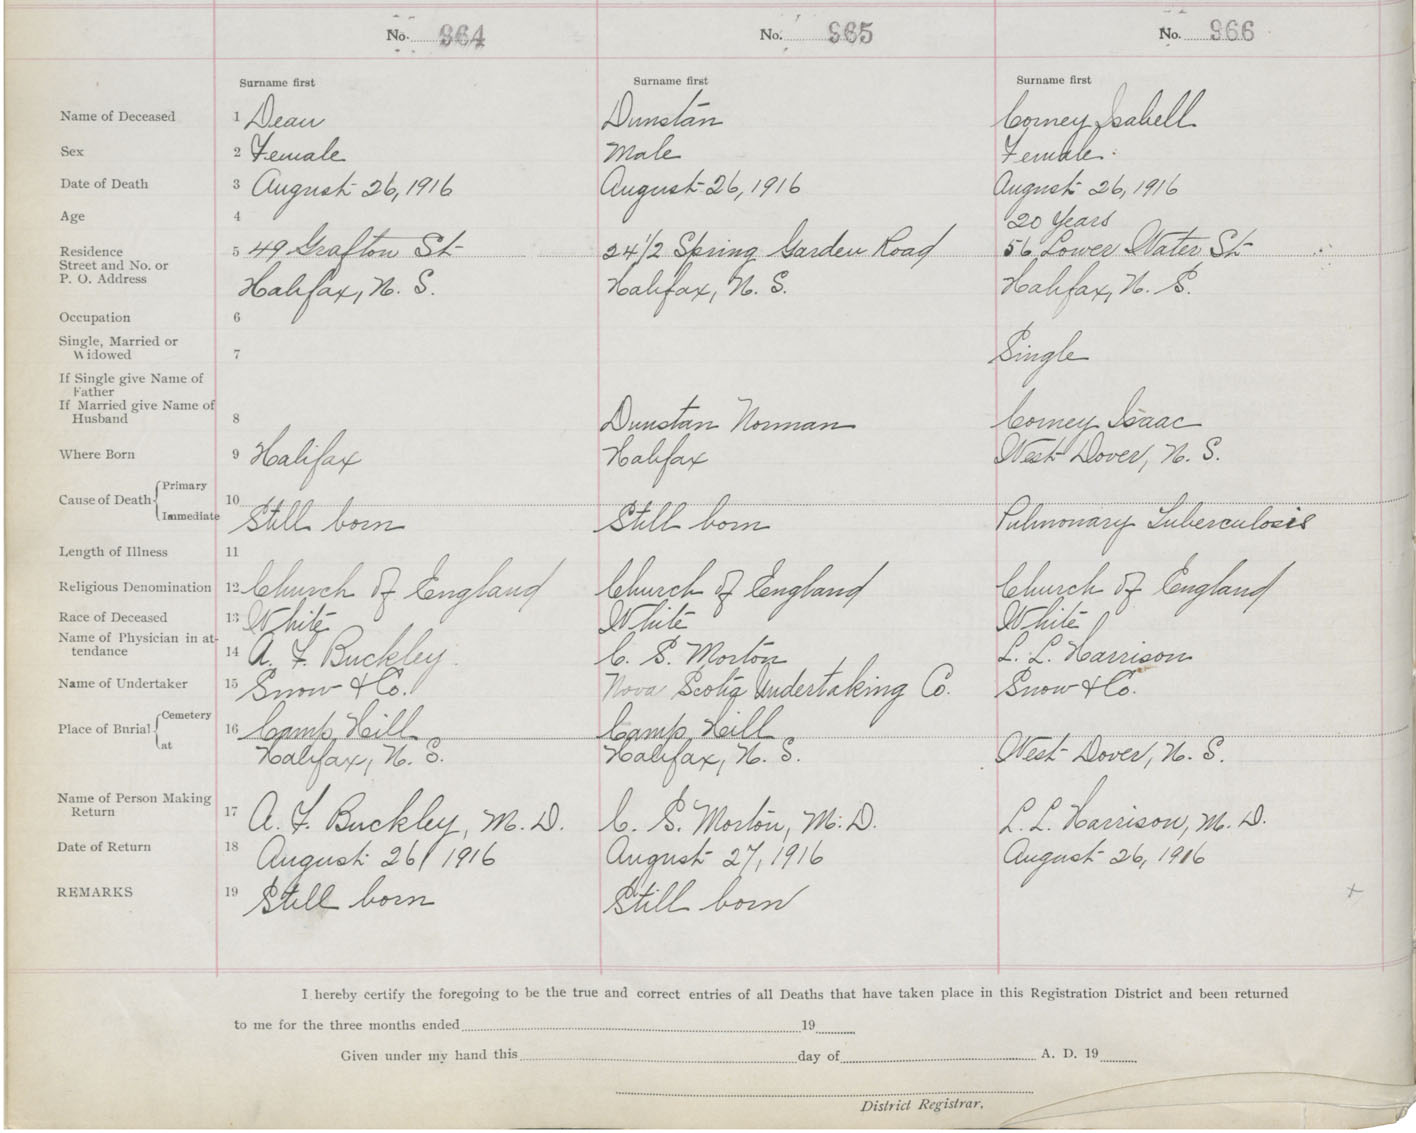 No. 964 No. 965 No. 966
Surname first Surname first Surname first
Name of Deceased 1 Dean Dunstan Corney Isabell
Sex 2 Female Male Female
Date of Death 3 August 26, 1916 August 26, 1916 August 26, 1916
Age 4 20 Years
Residence 5 49 Grafton St 24 1/2 Spring Garden Road 56 Lower Water St
Street and No. or
P. O. Address Halifax, N. S. Halifax, N. S. Halifax, N. S.
Occupation 6
Single, Married or
Widowed 7 Single
If Single give Name of
Father
If Married give Name of
Husband 8 Dunstan Norman Corney Isaac
Where Born 9 Halifax Halifax West Dover, N. S.
Cause of Death Primary 10
Immediate Still born Still born Pulmonary Tuberculosis
Length of Illness 11
Religious Denomination 12 Church of England Church of England Church of England
Race of Deceased 13 White White White
Name of Physician in at-
tendance 14 A. F. Buckley C. S. Morton L. L. Harrison
Name of Undertaker 15 Snow & Co. Nova Scotia Undertaking Co. Snow & Co.
Place of Burial Cemetery 16 Camp Hill Camp Hill
at Halifax, N. S. Halifax, N. S. West Dover, N. S.
Name of Person Making
Return 17 A. F. Buckley, M. D. C. S. Morton, M. D. L. L. Harrison, M. D.
Date of Return 18 August 26, 1916 August 27, 1916 August 26, 1916
REMARKS 19 Still born Still born
I hereby certify the foregoing to be the true and correct entries of all Deaths that have taken place in this Registration District and been returned
to me for the three months ended 19
Given under my hand this day of A. D. 19
District Registrar.